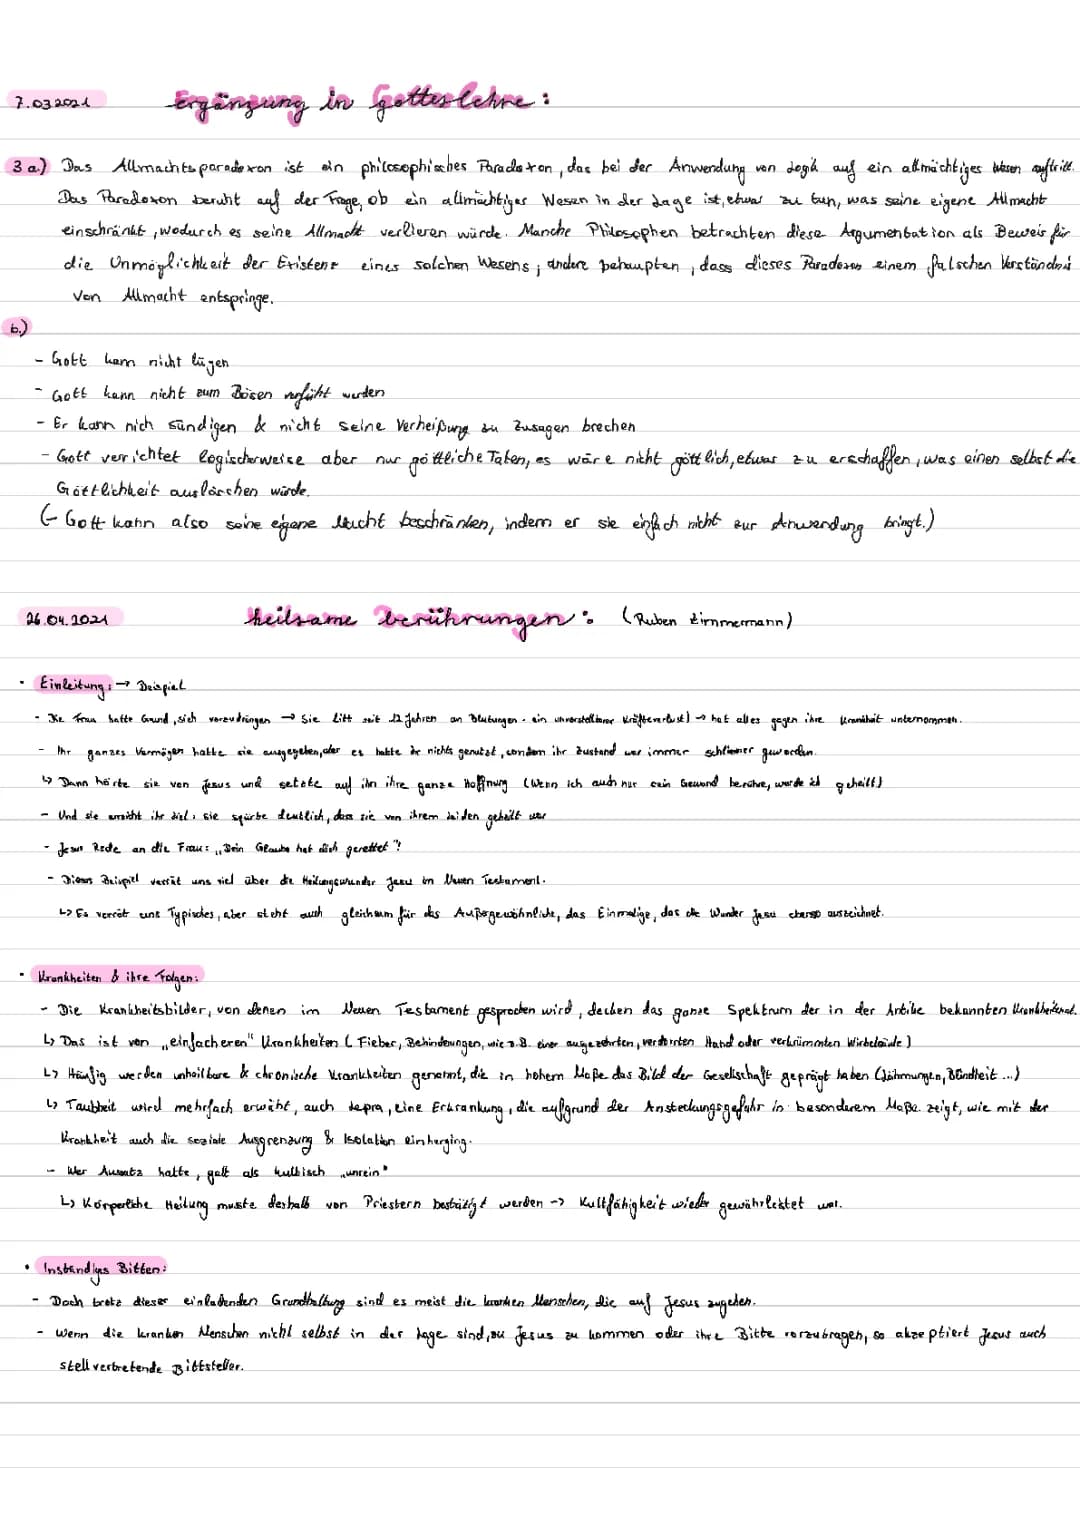 7.03.2021 Ergänzung in Gotteslehre:
3 a.) Das Allmachtsparadoxon ist ein philosophisches Paradoxon, das bei der Anwendung von Logik auf ein allmächtiges Wesen auftritt.
Das Paradoxon beruht auf der Frage, ob ein allmächtiger Wesen in der Lage ist, etwas zu tun, was seine eigene Allmacht
einschränkt, wodurch es seine Allmacht verlieren würde. Manche Philosophen betrachten diese Argumentation als Beweis für
die Unmöglichkeit der Existenz eines solchen Wesens; andere behaupten, dass dieses Paradoxon einem falschen Verständnis
von Allmacht entspringe.
b.)
- Gott kann nicht lügen
- Gott kann nicht zum Bösen verführt werden
- Er kann nich sündigen & nicht seine Verheißung zu Zusagen brechen
- Gott verrichtet logischerweise aber nur göttliche Taten, es wäre nicht göttlich, etwas zu erschaffen, was einen selbst die
Göttlichkeit auslöschen würde.
(- Gott kann also seine eigene Macht beschränken, indem er sie einfach nicht zur Anwendung bringt.)
26.04.2021 heilsame berührungen: (Ruben Zimmermann)
• Einleitung: → Beispiel
- Die Frau hatte Grund, sich vorzudrängen → Sie litt seit 12 Jahren an Blutungen - ein unvorstellbarer Kräfteverlust) → hat alles gegen ihre Krankheit unternommen.
- Ihr ganzes Vermögen hatte sie ausgegeben, aber es hatte ihr nichts genutzt, sondern ihr Zustand war immer schlimmer geworden.
↳ Dann hörte sie von Jesus und setzte auf ihn ihre ganze Hoffnung (Wenn ich auch nur sein Gewand berühre, werde ich geheilt)
- Und sie erreicht ihr Ziel: sie spürte deutlich, dass sie von ihrem Leiden geheilt war
- Jesus Rede an die Frau: „Dein Glaube hat dich gerettet"!
- Dieses Beispiel verrät uns viel über die Heilungswunder Jesu im Neuen Testament.
↳ Es verrät uns Typisches, aber steht auch gleichsam für das Außergewöhnliche, das Einmalige, das die Wunder Jesu ebenso auszeichnet.
• Krankheiten & ihre Folgen:
- Die Krankheitsbilder, von denen im Neuen Testament gesprochen wird, decken das ganze Spektrum der in der Antike bekannten
↳ Das ist von „einfacheren" Krankheiten (Fieber, Behinderungen, wie z.B. einer ausgezehrten, verdorrten Hand oder verkrümmten Wirbelsäule)
↳ Häufig werden unheilbare & chronische Krankheiten genannt, die in hohem Maße das Bild der Gesellschaft geprägt haben (Lähmungen, Blindheit ...)
↳ Taubheit wird mehrfach erwäht, auch Lepra, eine Erkrankung, die aufgrund der Ansteckungsgefahr in besonderem Maße zeigt, wie mit der
Krankheit auch die soziale Ausgrenzung & Isolation einherging.
- Wer Aussatz hatte, galt als kultisch „unrein"
↳ Körperliche Heilung musste deshalb von Priestern bestätigt werden -> Kultfähigkeit wieder gewährleistet war.
• Inständiges Bitten:
- Doch trotz dieser einladenden Grundhaltung sind es meist die kranken Menschen, die auf Jesus zugehen.
- Wenn die kranken Menschen nicht selbst in der Lage sind, zu Jesus zu kommen oder ihre Bitte vorzutragen, so akzeptiert Jesus auch
stellvertretende Bittsteller.